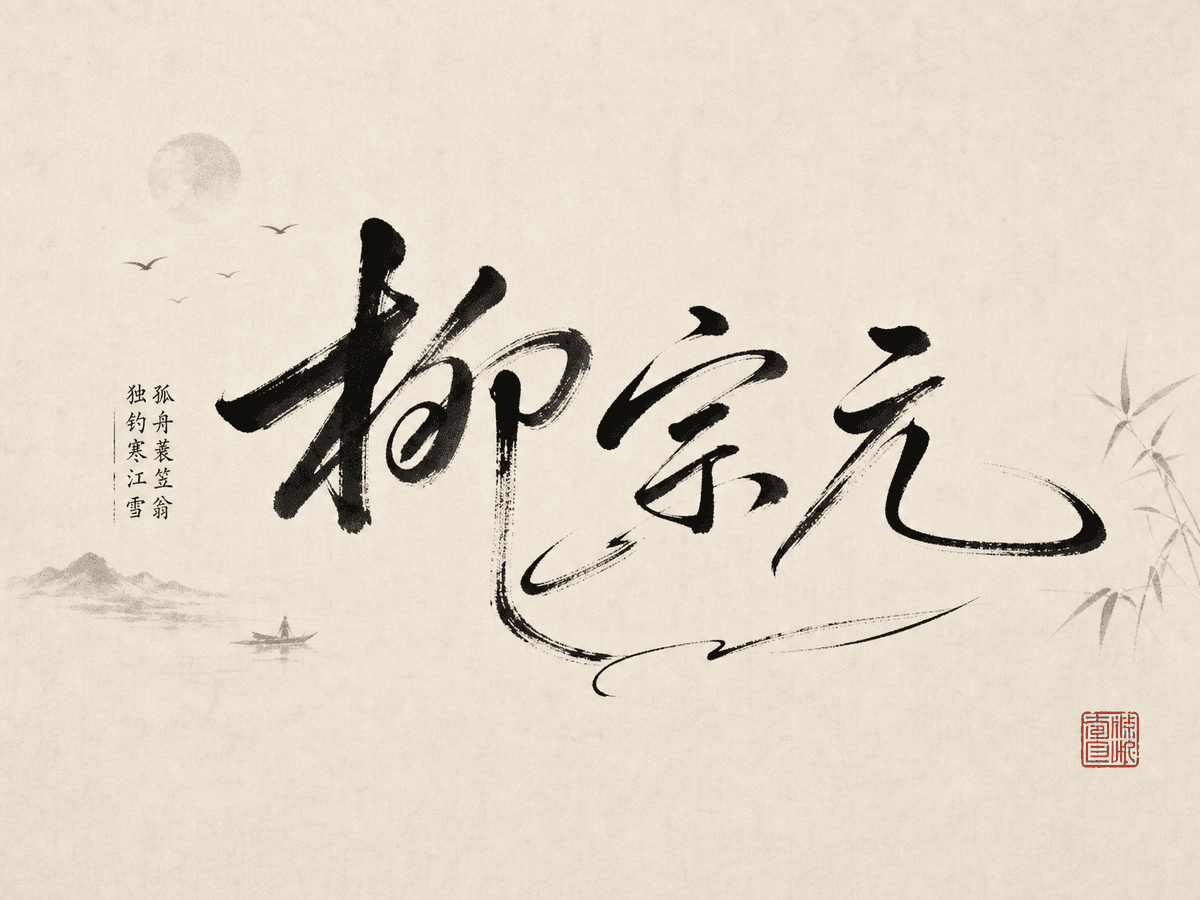 柳宗元
孤舟蓑笠翁
独钓寒江雪